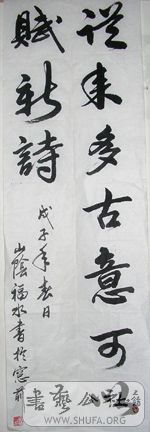 從来多古意可以
賦新詩
戊子年春日
山陰福水書於窓前
書藝公社
WWW.SHUFA.ORG